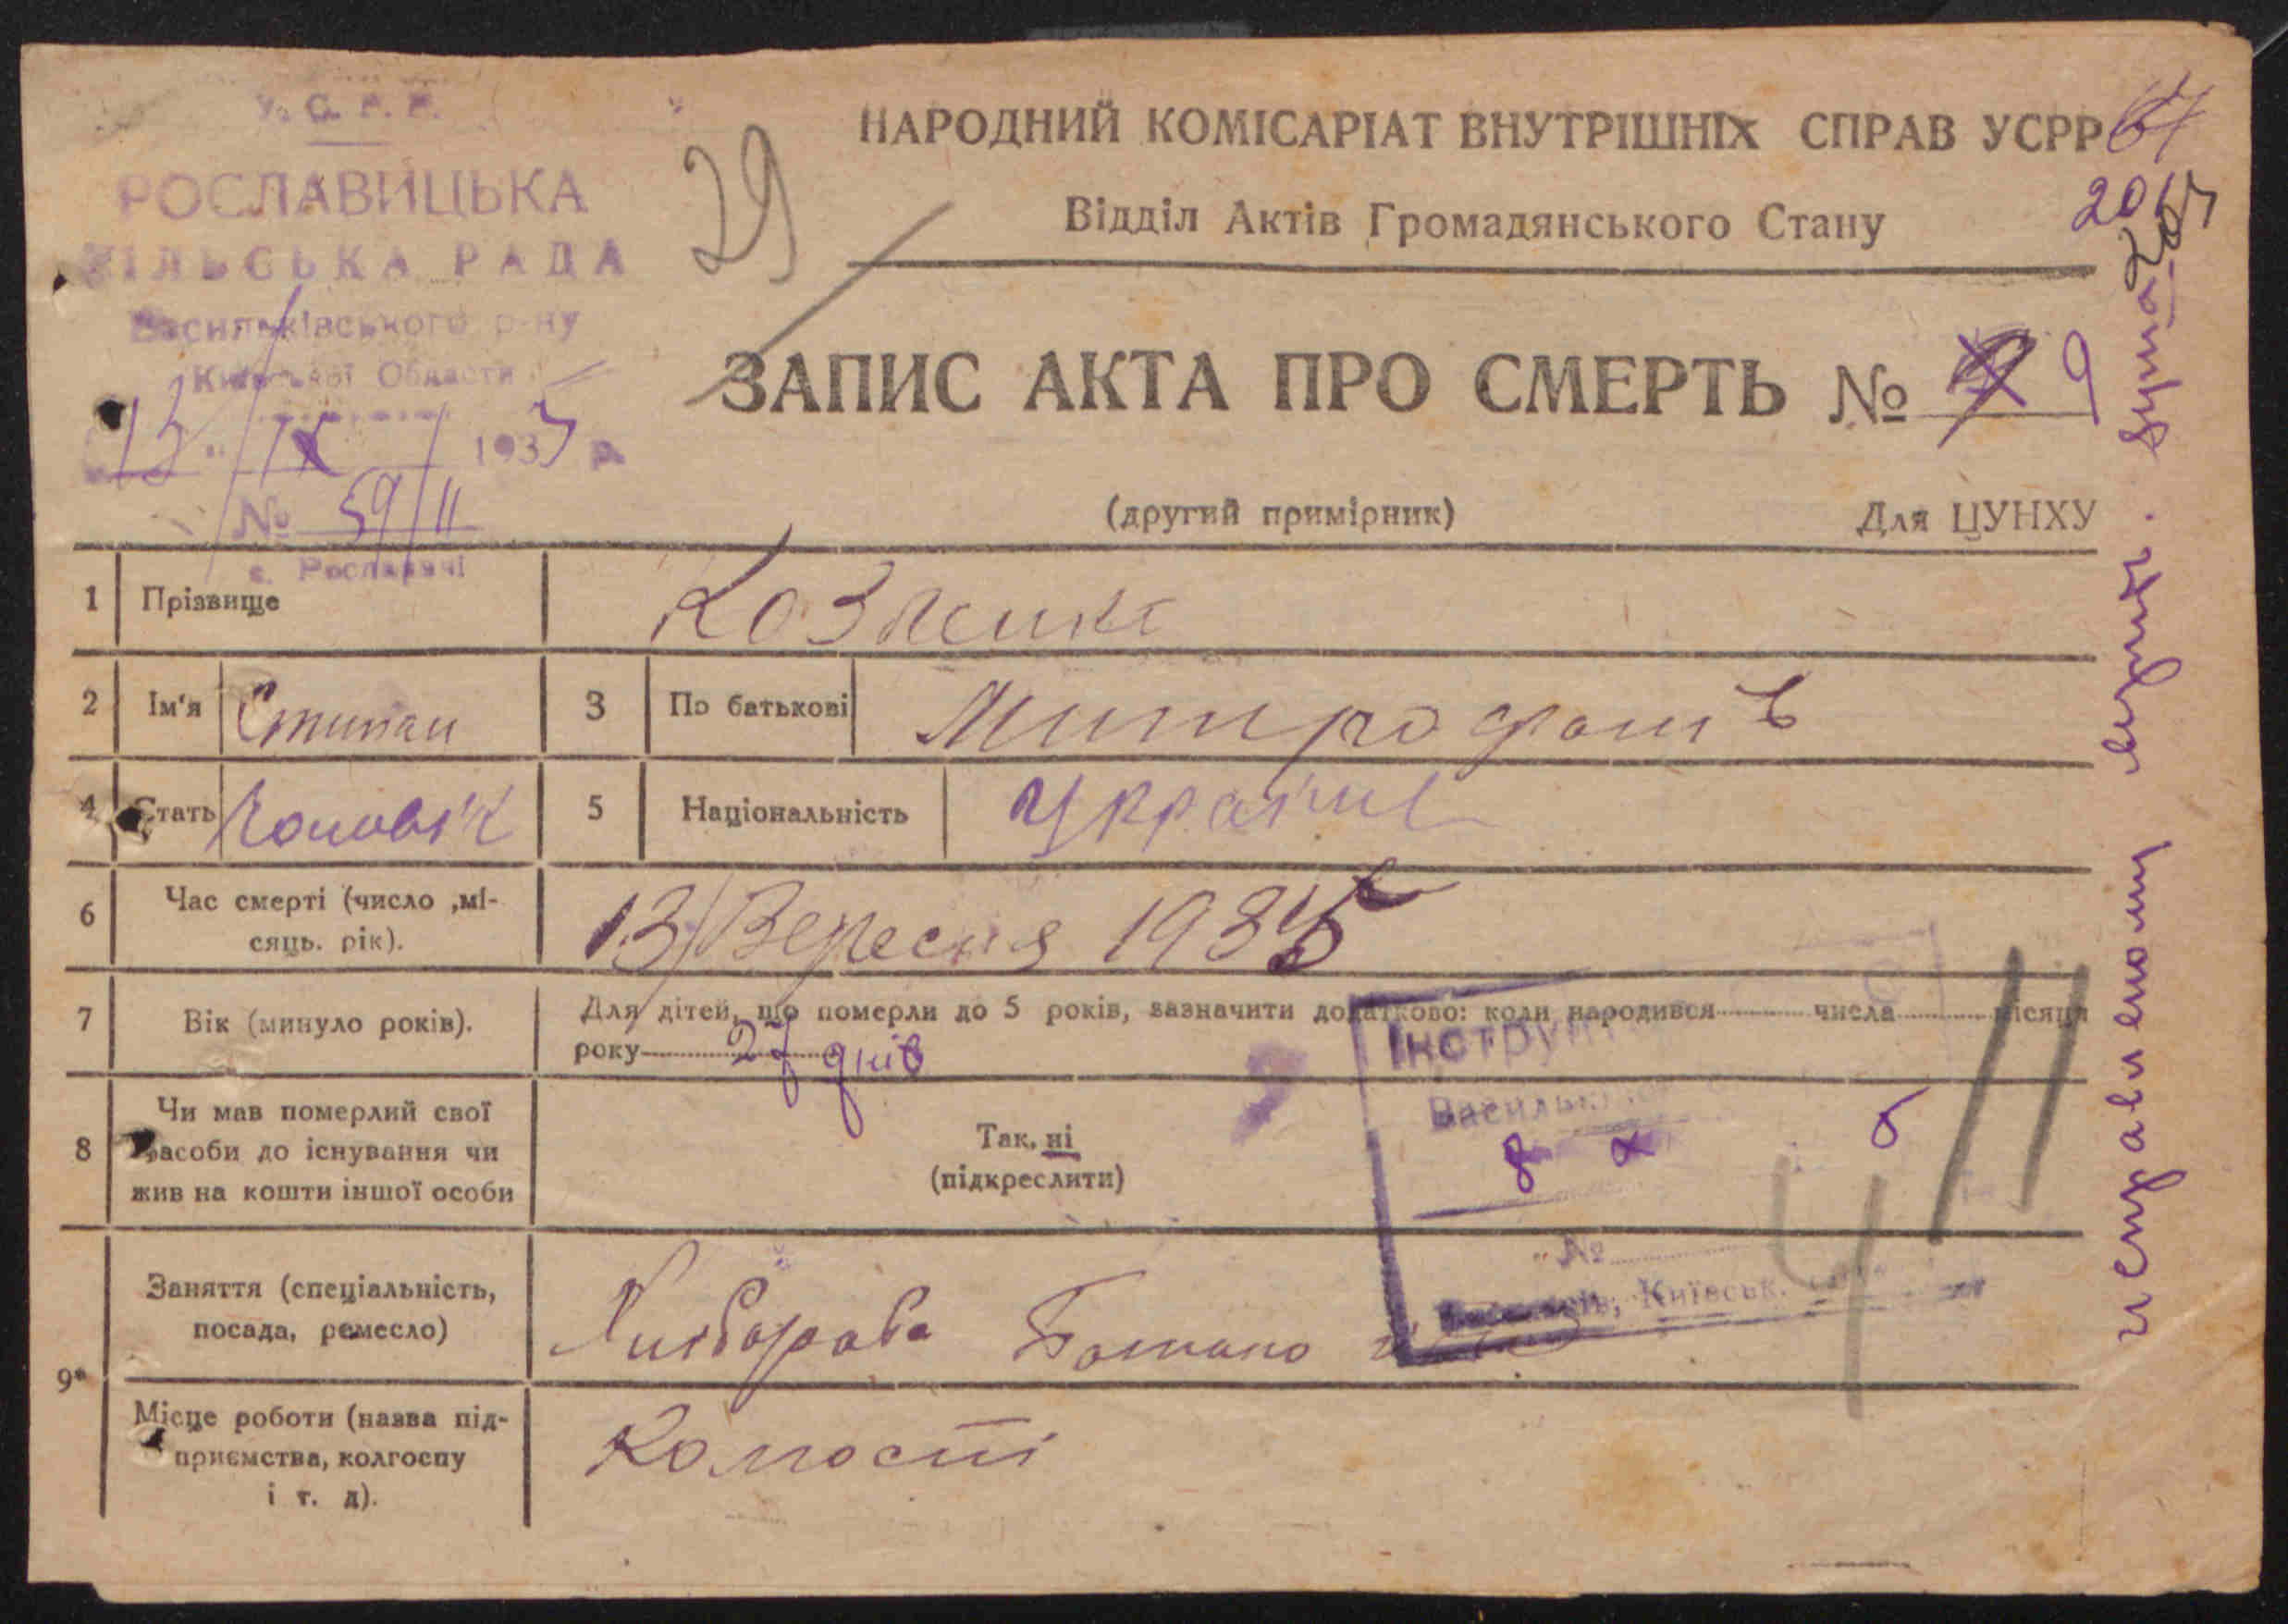 У. С. Р. Р.
РОСЛАВИЦЬКА
СІЛЬСЬКА РАДА
Васильківського р-ну
Київської Области
13 IX 1935 р.
№ 59/11
с. Рославичі
29
НАРОДНИЙ КОМІСАРІАТ ВНУТРІШНІХ СПРАВ УСРР
Відділ Актів Громадянського Стану
ЗАПИС АКТА ПРО СМЕРТЬ № 9
(другий примірник) Для ЦУНХУ
1 Прізвище
2 Ім'я Степан 3 По батькові Митрофанів
4 Стать Чоловік 5 Національність Україн
6 Час смерті (число ,мі-
сяць. рік). 13 Вересня 1935
7 Вік (минуло років). Для дітей, що померли до 5 років, зазначити додатково: коли народився числа місяця
року 27 днів
8 Чи мав померлий свої
засоби до існування чи
жив на кошти іншої особи
Так, ні
(підкреслити)
Інструк
Васильк
8 X 5
№
Київськ.
4
11
9* Заняття (специіальність,
посада, ремесло)
Місце роботи (назва під-
приємства, колгоспу
і т. д).
исправленому верить.